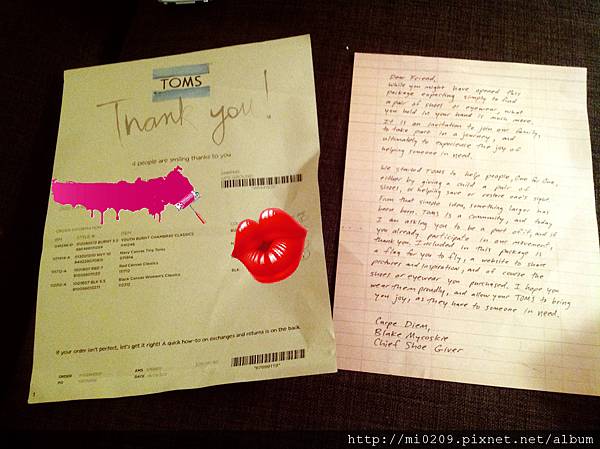 TOMS
Thank you!
4 people are smiling thanks to you
ORDER INFORMATION
ITEM
YOUTH BURNT CHAMBRAY CLASSICS
Navy Canvas Tiny Toms
Red Canvas Classics
Black Canvas Women's Classics
If your order isn't perfect, let's get it right! A quick how-to on exchanges and returns is on the back.
ORDER
PO
DATE
Dear Friend,
While you might have opened this
package expecting simply to find
a pair of shoes or eyewear, what
you hold in your hand is much more.
It is an invitation to join our family,
to take part in a journey, and
ultimately to experience the joy of
helping someone in need.
We started TOMS to help people, One for One,
either by giving a child a pair of
shoes, or helping save or restore one's sight.
From that simple idea, something larger has
been born. TOMS is a community, and today,
I am asking you to be a part of it, and if
you already participate in our movement,
thank you. Included in this package is
a flag for you to fly, a website to share
pictures and inspiration, and of course the
shoes or eyewear you purchased. I hope you
wear them proudly, and allow your TOMS to bring
you joy, as they have to someone in need.
Carpe Diem,
Blake Mycoskie
Chief Shoe Giver
http://mi0209.pixnet.net/album